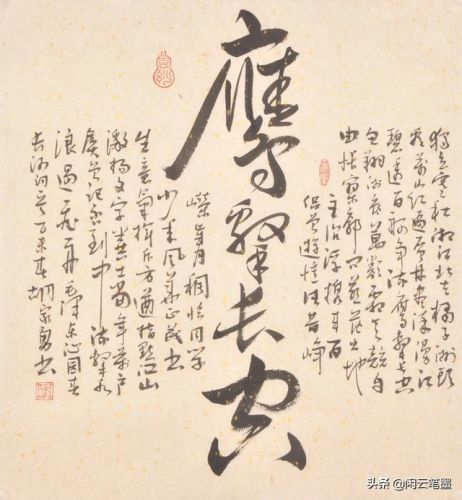 鷹擊长空
独立寒秋湘江北去橘子洲头
看万山红遍层林尽染漫江
碧透百舸争流鷹擊长空
鱼翔浅底万类霜天竞自
由怅寥廓问苍茫大地
主沉浮携来百
侣曾遊忆往昔峥
嵘岁月稠恰同学
少年风华正茂书
生意气挥斥方遒指點江山
激扬文字粪土当年万户
侯曾记否到中流擊水
浪遏飞舟毛泽东沁园春
长沙词 胡家勇书
头条 @闲云笔墨